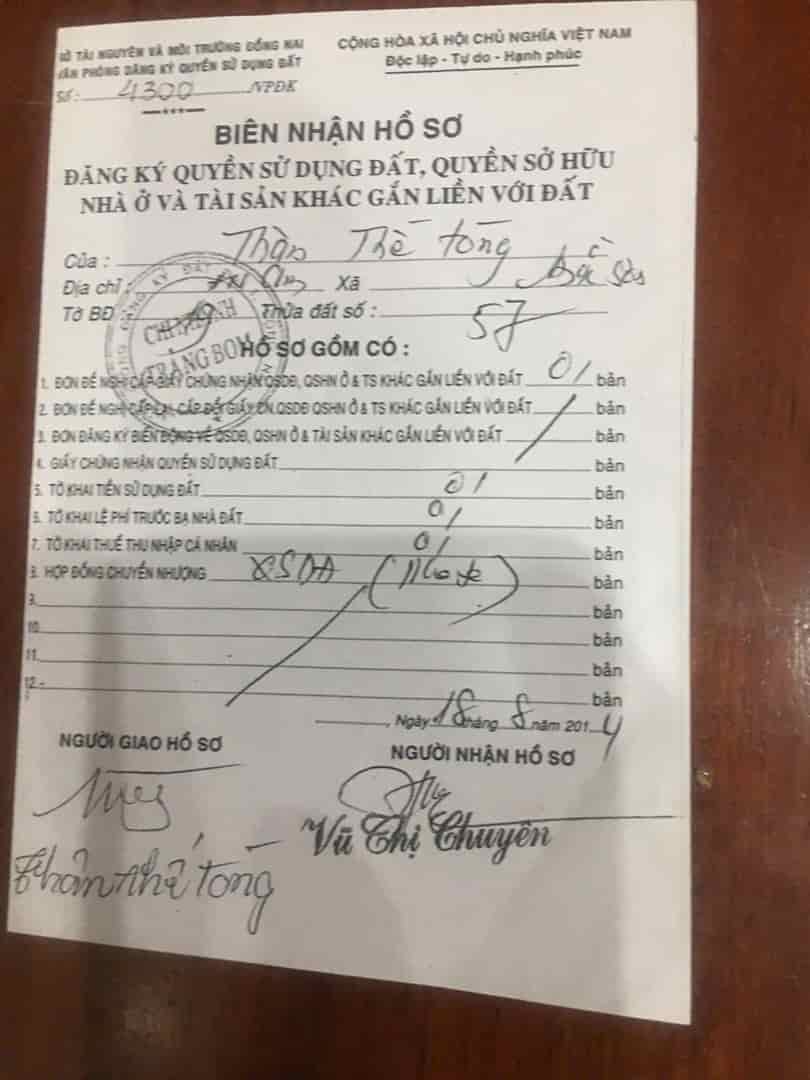 SỞ TÀI NGUYÊN VÀ MÔI TRƯỜNG ĐỒNG NAI
VĂN PHÒNG ĐĂNG KÝ QUYỀN SỬ DỤNG ĐẤT
Số: 4300 /VPĐK
CỘNG HÒA XÃ HỘI CHỦ NGHĨA VIỆT NAM
Độc lập - Tự do - Hạnh phúc
BIÊN NHẬN HỒ SƠ
ĐĂNG KÝ QUYỀN SỬ DỤNG ĐẤT, QUYỀN SỞ HỮU
NHÀ Ở VÀ TÀI SẢN KHÁC GẮN LIỀN VỚI ĐẤT
Của : Thân Thế Tòng
Địa chỉ : Xã Bắc Sơn
Tờ BĐ Thửa đất số : 57
CHI NHÁNH
TRẢNG BOM
HỒ SƠ GỒM CÓ :
1. ĐƠN ĐỀ NGHỊ CẤP GIẤY CHỨNG NHẬN QSDĐ, QSHN Ở & TS KHÁC GẮN LIỀN VỚI ĐẤT 01 bản
2. ĐƠN ĐỀ NGHỊ CẤP LẠI, CẤP ĐỔI GIẤY CN QSDĐ QSHN Ở & TS KHÁC GẮN LIỀN VỚI ĐẤT bản
3. ĐƠN ĐĂNG KÝ BIẾN ĐỘNG VỀ QSDĐ, QSHN Ở & TÀI SẢN KHÁC GẮN LIỀN VỚI ĐẤT bản
4. GIẤY CHỨNG NHẬN QUYỀN SỬ DỤNG ĐẤT bản
5. TỜ KHAI TIỀN SỬ DỤNG ĐẤT 01 bản
6. TỜ KHAI LỆ PHÍ TRƯỚC BẠ NHÀ ĐẤT 01 bản
7. TỜ KHAI THUẾ THU NHẬP CÁ NHÂN 01 bản
8. HỢP ĐỒNG CHUYỂN NHƯỢNG bản
9. bản
10. bản
11. bản
12.- bản
, Ngày 18 tháng 8 năm 2014
NGƯỜI GIAO HỒ SƠ
NGƯỜI NHẬN HỒ SƠ
Vũ Thị Chuyên
Thân Thế Tòng